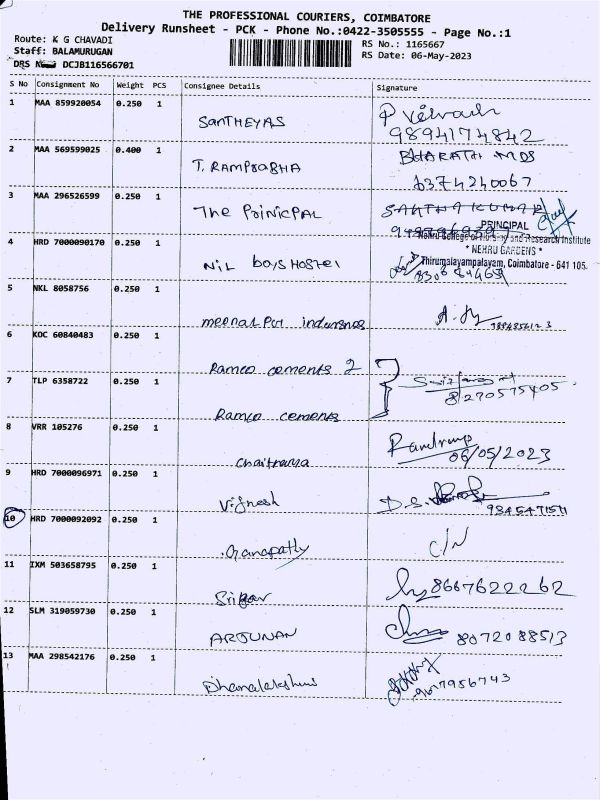 THE PROFESSIONAL COURIERS, COIMBATORE
Delivery Runsheet - PCK - Phone No.:0422-3505555 - Page No.:1
Route: K G CHAVADI
Staff: BALAMURUGAN
DRS DCJB116566701
RS No.: 1165667
RS Date: 06-May-2023
S No Consignment No Weight PCS Consignee Details Signature
1 MAA 859920054 0.250 1
SANTHEYAS
9894174842
2 MAA 569599025 0.400 1
T. RAMPRABHA
BHARATH MDS
6374240067
3 MAA 296526599 0.250 1
The PRINICPAL
PRINCIPAL
4 HRD 7000090170 0.250 1
Nehru College of Nursing and Research Institute
* NEHRU GARDENS *
Thirumalayampalayam, Coimbatore - 641 105.
NIL boys Hostel
5 NKL 8058756 0.250 1
6 KOC 60840483 0.250 1
Ramco cements 2
7 TLP 6358722 0.250 1
8270575405
Ramco cements
8 VRR 105276 0.250 1
06/05/2023
Chaithanya
9 HRD 7000096971 0.250 1
Vignesh
D.S.
10 HRD 7000092092 0.250 1
Ganapathy
C/N
11 IXM 503658795 0.250 1
8667622262
12 SLM 319059730 0.250 1
ARJUNAN
8072088513
13 MAA 298542176 0.250 1
Dhanalakshmi
9617956743